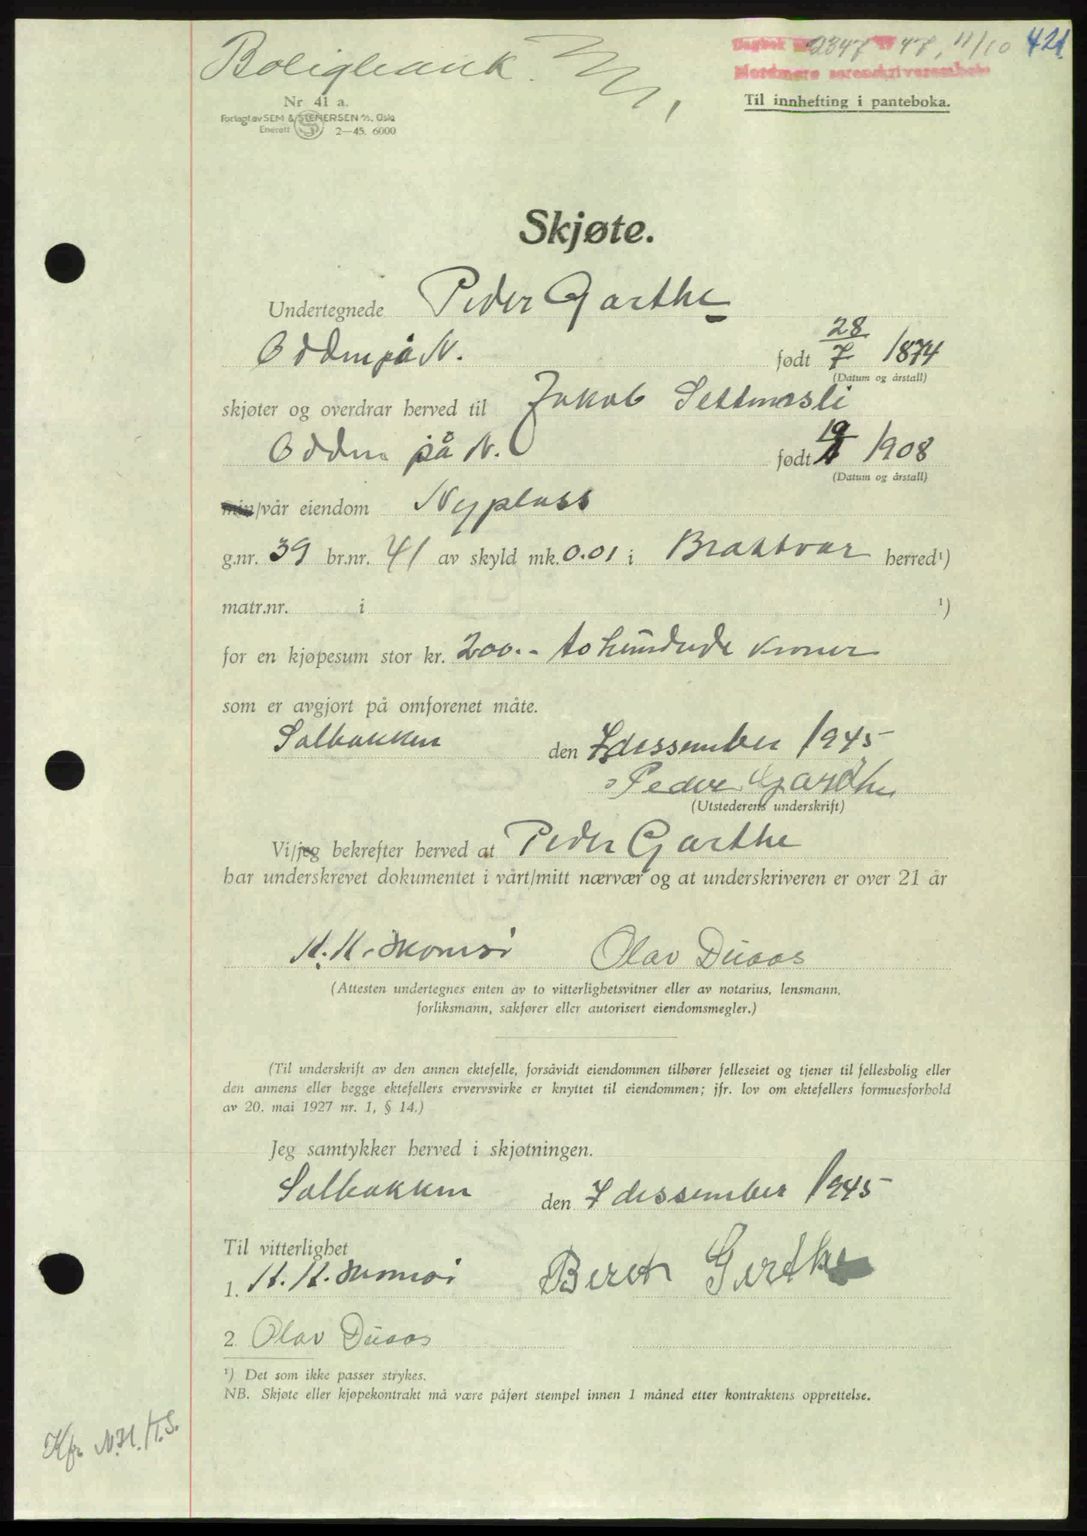 Boligbank.
Dagbok 2847 1947, 11/10 421
Nordmøre sorenskriverembete
Nr 41 a.
Forlagt av SEM & STENERSEN A/S, Oslo
Enerett 2—45. 6000
Til innhefting i panteboka.
Skjøte.
Undertegnede Peder Garthe
Odden på N. født 28/7 1874
(Datum og årstall)
skjøter og overdrar herved til Jakob Settmesli
Odden på N. født 19/ 1908
(Datum og årstall)
min/vår eiendom Nyplass
g.nr. 39 br.nr. 41 av skyld mk. 0.01 i Brattvær herred¹)
matr.nr. i ¹)
for en kjøpesum stor kr. 200.- to hundrede kroner
som er avgjort på omforenet måte.
Solbakken den 7 dessember 1945
Peder Garthe
(Utstederens underskrift)
Vi/jeg bekrefter herved at Peder Garthe
har underskrevet dokumentet i vårt/mitt nærvær og at underskriveren er over 21 år
Olav Duaas
(Attesten undertegnes enten av to vitterlighetsvitner eller av notarius, lensmann,
forliksmann, sakfører eller autorisert eiendomsmegler.)
(Til underskrift av den annen ektefelle, forsåvidt eiendommen tilhører felleseiet og tjener til fellesbolig eller
den annens eller begge ektefellers ervervsvirke er knyttet til eiendommen; jfr. lov om ektefellers formuesforhold
av 20. mai 1927 nr. 1, § 14.)
Jeg samtykker herved i skjøtningen.
Solbakken den 7 dessember 1945
Til vitterlighet
1. Beret Garthe
2 Olav Duaas
¹) Det som ikke passer strykes.
NB. Skjøte eller kjøpekontrakt må være påført stempel innen 1 måned etter kontraktens opprettelse.
Kfr. N.H./T.S.